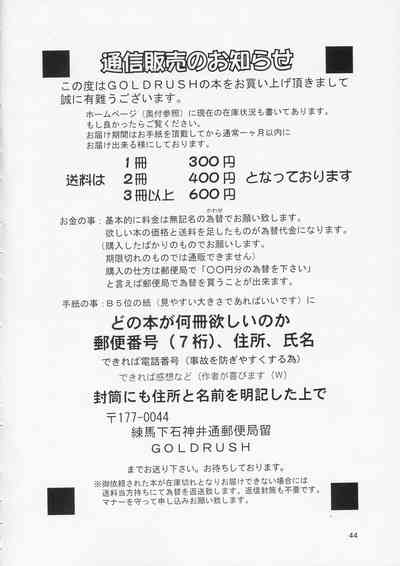 通信販売のお知らせ
この度はGOLDRUSHの本をお買い上げ頂きまして
誠に有難うございます。
ホームページ（奥付参照）に現在の在庫状況も書いてあります。
もし良かったらご覧ください。
お届け期間はお手紙を頂戴してから通常一ヶ月以内に
お届け出来る様にしております。
1冊 300円
送料は 2冊 400円 となっております
3冊以上 600円
かわせ
お金の事：基本的に料金は無記名の為替でお願い致します。
欲しい本の価格と送料を足したものが為替代金になります。
（購入したばかりのものでお願いします。
期限切れのものでは通販できません）
購入の仕方は郵便局で「〇〇円分の為替を下さい」
と言えば郵便局で為替を買うことが出来ます。
手紙の事：B5位の紙（見やすい大きさであればいいです）に
どの本が何冊欲しいのか
郵便番号（7桁）、住所、氏名
できれば電話番号（事故を防ぎやすくする為）
できれば感想など（作者が喜びます（W）
封筒にも住所と名前を明記した上で
〒177-0044
練馬下石神井通郵便局留
GOLDRUSH
までお送り下さい。お待ちしております。
※御依頼された本が在庫切れとなりお届けできない場合には
送料当方持ちにて為替を返送致します。返信封筒も不要です。
マナーを守って申し込みお願い致します。
44